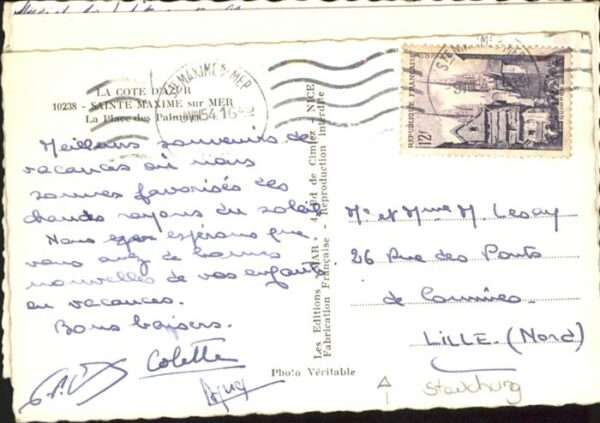 LA COTE D'AZUR
10238 - SAINTE MAXIME sur MER
La Place des Palmiers
STE MAXIME S MER
54 16
REPUBLIQUE FRANÇAISE
12F
Meilleurs souvenirs de
vacances où nous
sommes favorisés des
chauds rayons du soleil
Nous espérons que
vous avez de bonnes
nouvelles de vos enfants
en vacances.
Bons baisers.
Colette
Les Editions Bd de Cimiez NICE
Fabrication Française - Reproduction interdite
Photo Véritable
Mr et Mme M. Lesay
26 Rue des Ponts
de Comines
LILLE. (Nord)